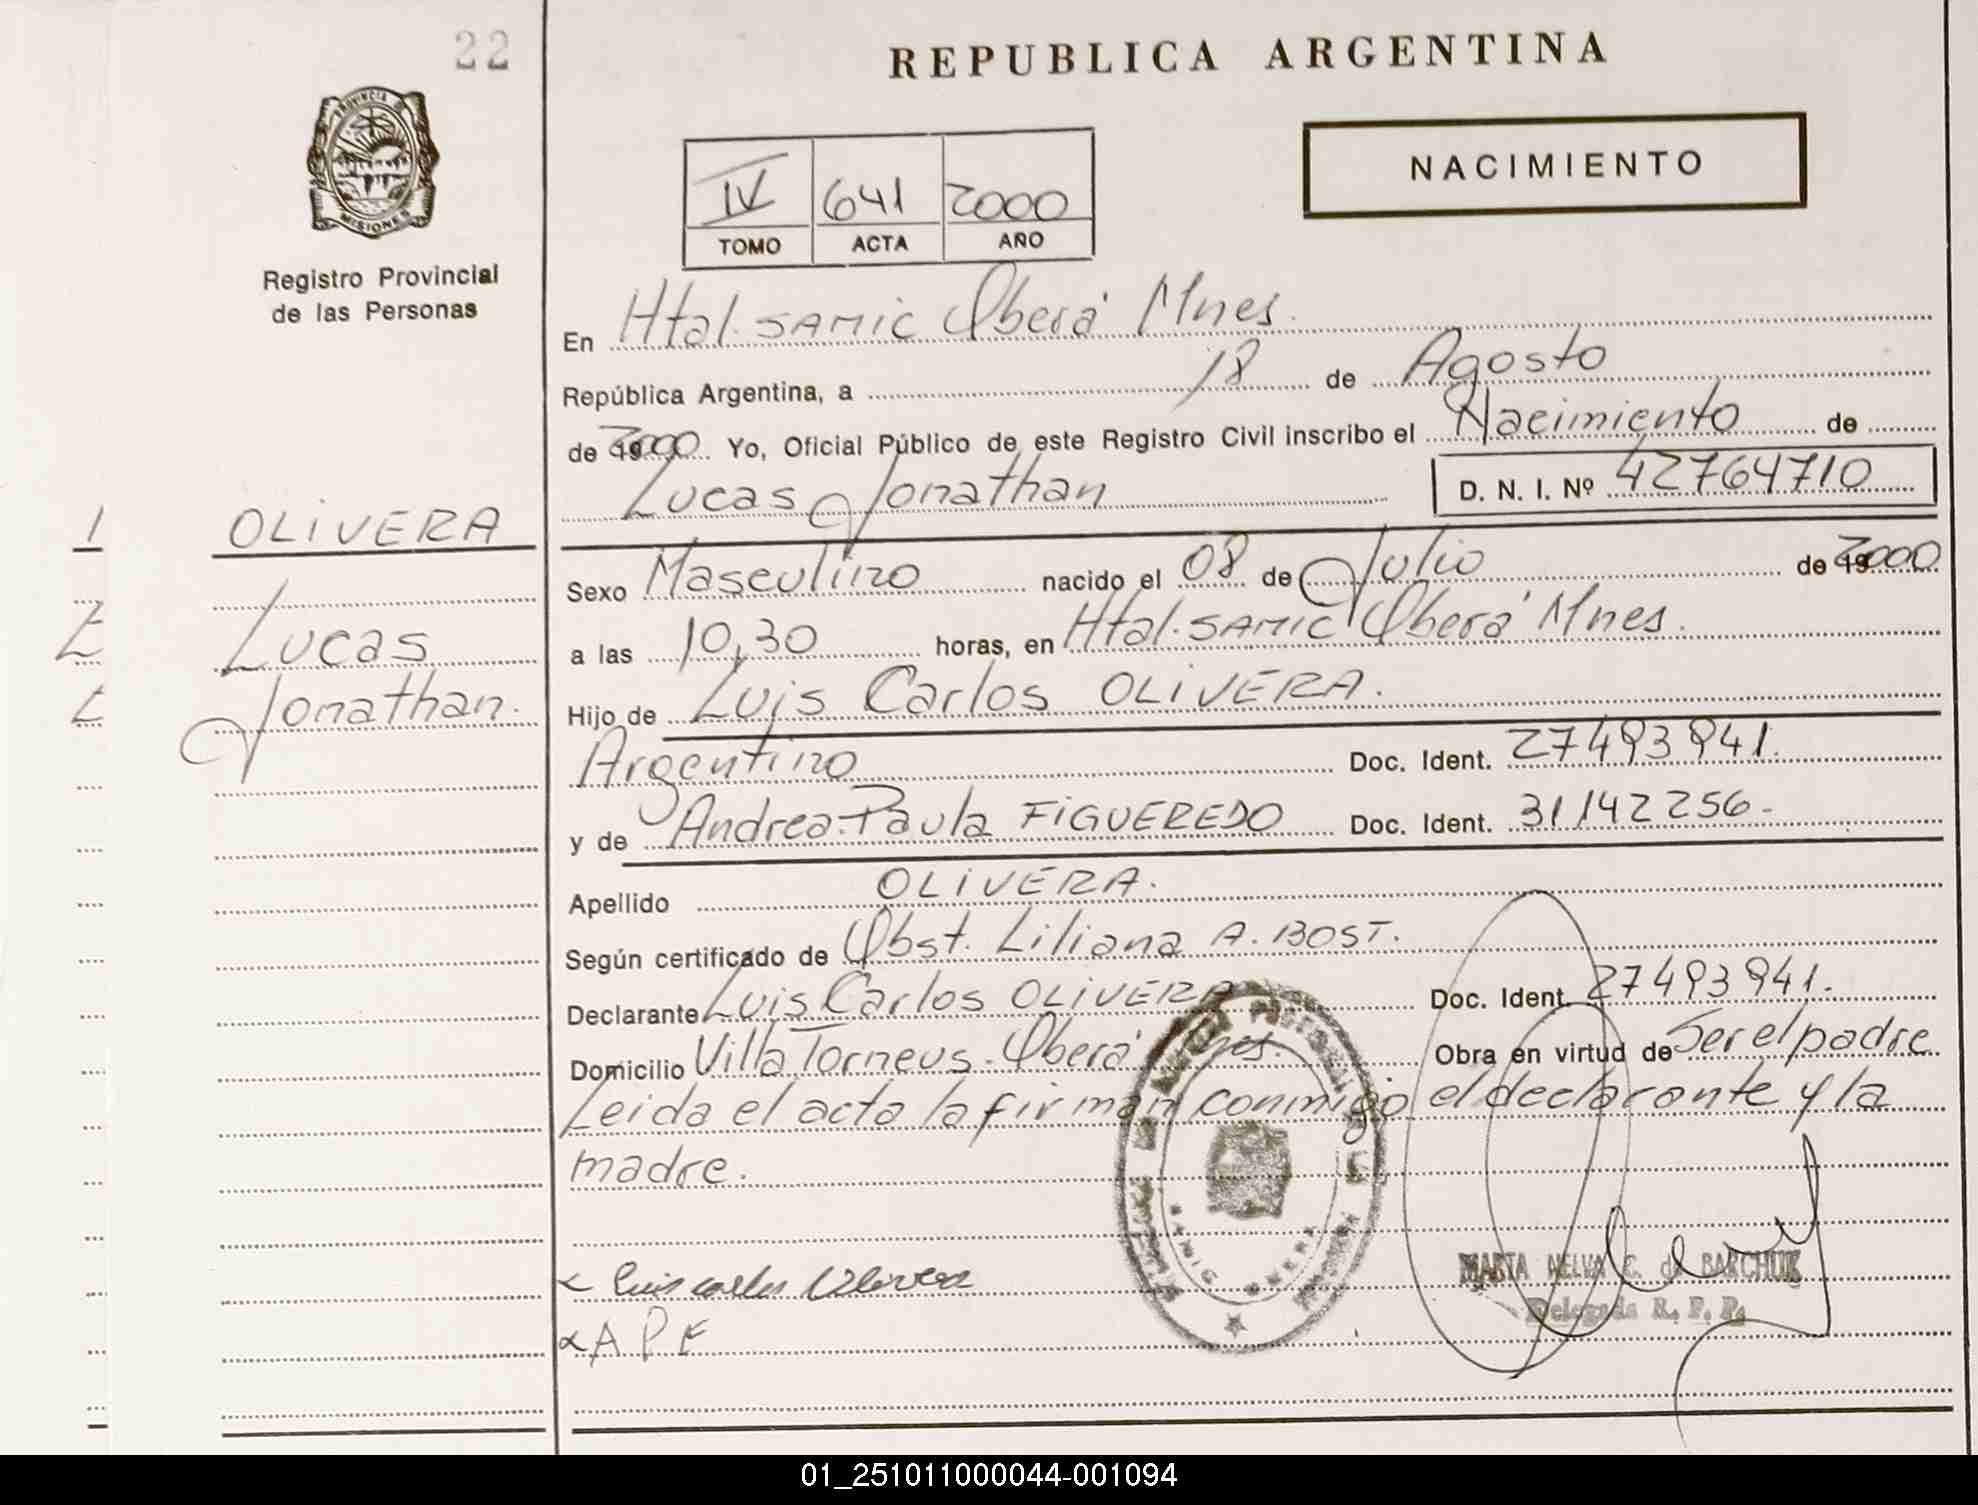 22
REPUBLICA ARGENTINA
PROVINCIA
MISIONES
Registro Provincial
de las Personas
NACIMIENTO
IV 641 2000
TOMO ACTA AÑO
En Htal. SAMIC Oberá Mnes.
República Argentina, a 18 de Agosto
de 2000 Yo, Oficial Público de este Registro Civil inscribo el Nacimiento de
Lucas Jonathan D. N. I. Nº 42764710
1 OLIVERA
Lucas
Jonathan.
Sexo Masculino nacido el 08 de Julio de 2000
a las 10,30 horas, en Htal. SAMIC Oberá Mnes.
Hijo de Luis Carlos OLIVERA.
Argentino Doc. Ident. 27493941.
y de Andrea Paula FIGUEREDO Doc. Ident. 31142256-
Apellido OLIVERA.
Según certificado de Obst. Liliana A. BOST.
Declarante Luis Carlos OLIVERA Doc. Ident. 27493941.
Domicilio Villa Torneus - Oberá Mnes. Obra en virtud de Ser el padre
Leida el acta la firman conmigo el declarante y la
madre.
Luis carlos Olivera
A P F
MARTA NELVA C. de BARCHUK
Delegada R. P. P.
01_251011000044-001094